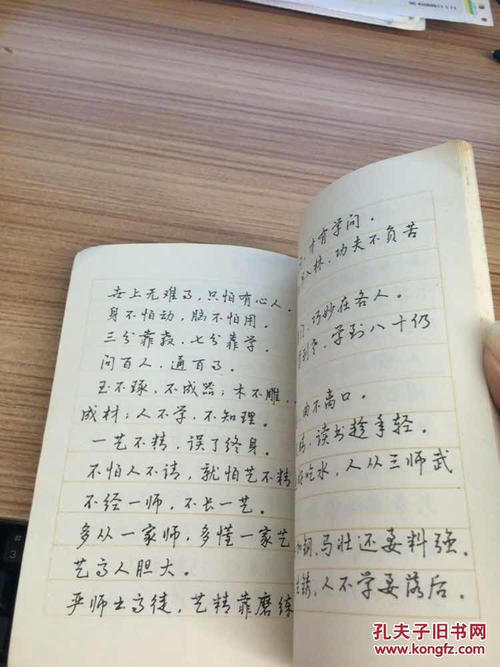 世上无难了，只怕有心人，
身不怕动，脑不怕用。
三分靠教，七分靠学。
问百人，通百了。
玉不琢，不成器；木不雕，
成材；人不学，不知理。
一艺不精，误了终身。
不怕人不请，就怕艺不精
不经一师，不长一艺。
多从一家师，多懂一家艺
艺高人胆大。
严师出高徒，艺精靠磨练
才有学问。
林，功夫不负苦
巧妙在各人。
学到八十仍
曲不离口。
读书趁手轻。
吃水，人从三师武
钢，马壮还要料强。
锈，人不学要落后。
孔夫子旧书网
www.kongfz.com